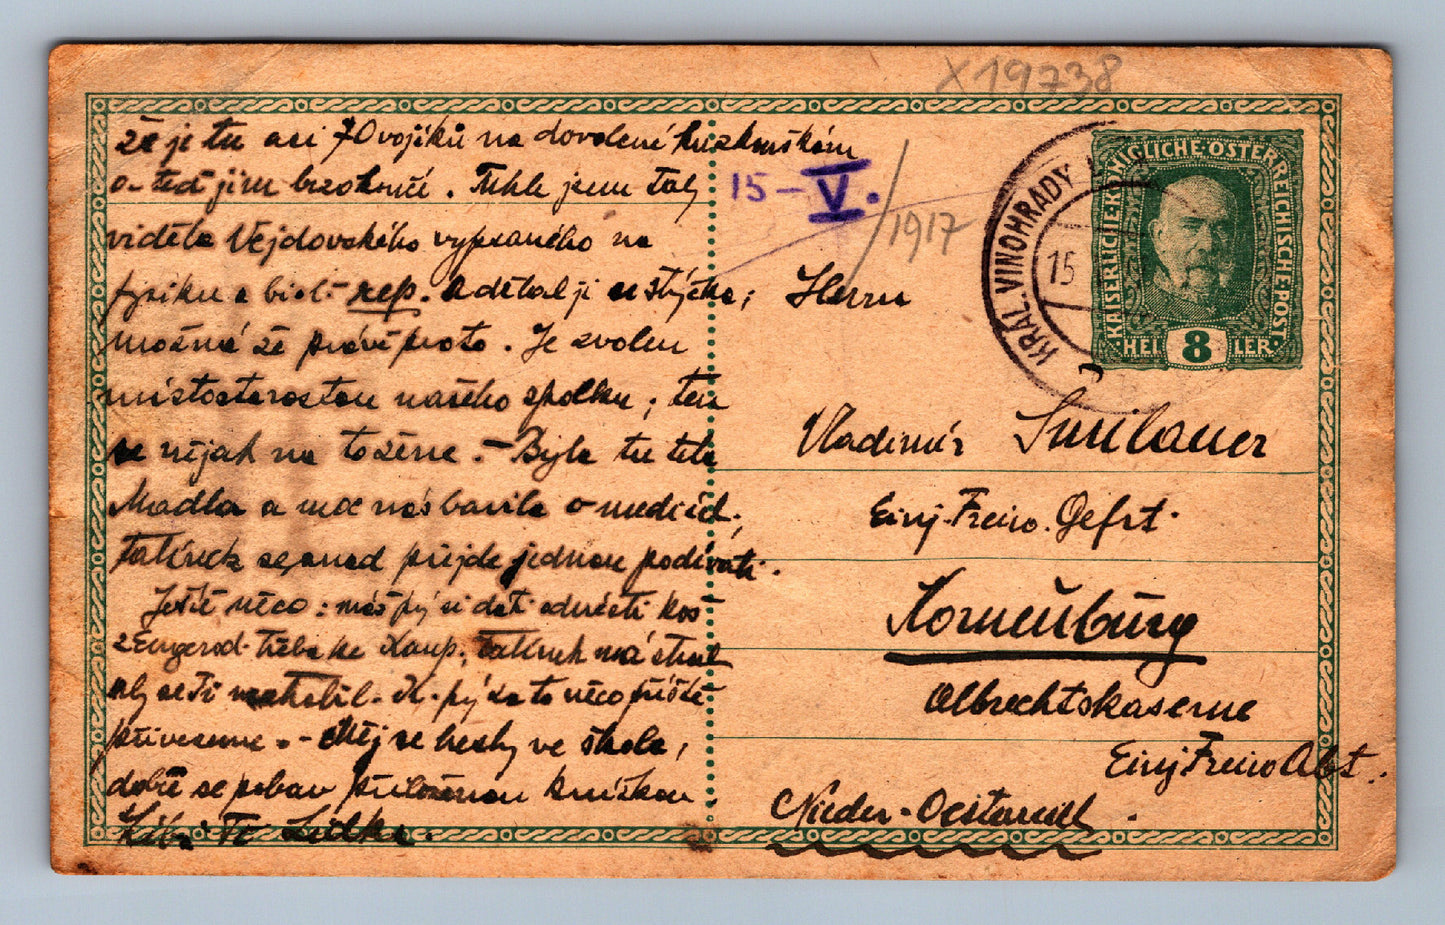 X 19738
že je tu asi 70 vojíků na dovolené
a teď jim brzo končí. Tuhle jsem taky
viděla Vejdovského vypsaného na
fysiku a biol. rep. A detail ji u strýčka;
možná že právě proto. Je zvolen
místostarostou našeho spolku; ten
se nějak na to žene. – Byla tu teta
Madla a moc nás bavila o medicích;
tatínek se snad přijde jednou podívati.
Ještě něco: máš prý si dáti koš
tatínek má strach
aby se Ti neztratil. prý za to něco příště
přivezeme. – Měj se hezky ve škole,
dobře se pobav přiloženou knížkou.
Líbá Tě Lidka.
15 – V.
/1917
KRÁL. VINOHRADY
15
KAISERLICHE·KÖNIGLICHE·ÖSTERREICHISCHE·POST·
8 HELLER
Herrn
Vladimír Šmilauer
Einj. Freiw. Gefrt.
Korneuburg
Albrechtskaserne
Einj Freiw Abt.
Nieder-Oesterreich